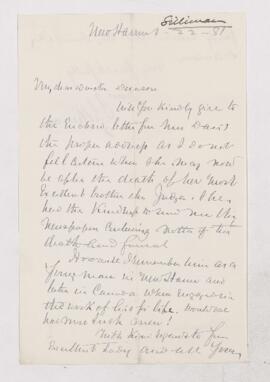 Silliman
New Haven 22 - 81
My dear
Will you kindly give to
the Enclosed letter for Mrs Davis
the proper address as I do not
feel certain where she may now
be after the death of her most
Excellent brother the Judge. She
the kindness to send me the
Newspaper containing notice of his
death and funeral
I remember him as a
young man in New Haven and
later in when engaged in
the work of his life. Would we
had more such men!
With kind regards to your
Excellent Lady and all yours,